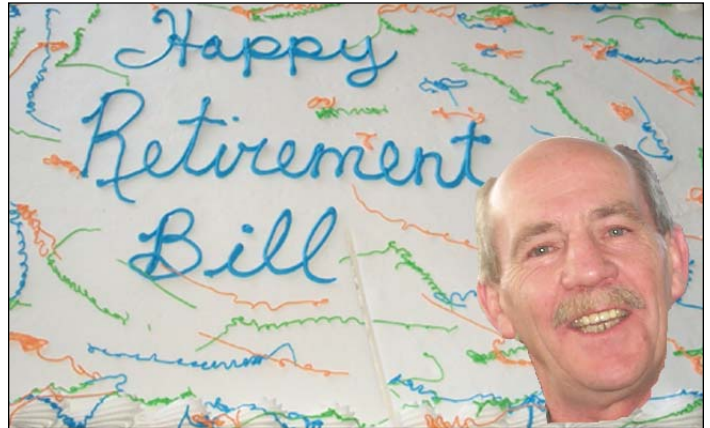 Happy
Retirement
Bill